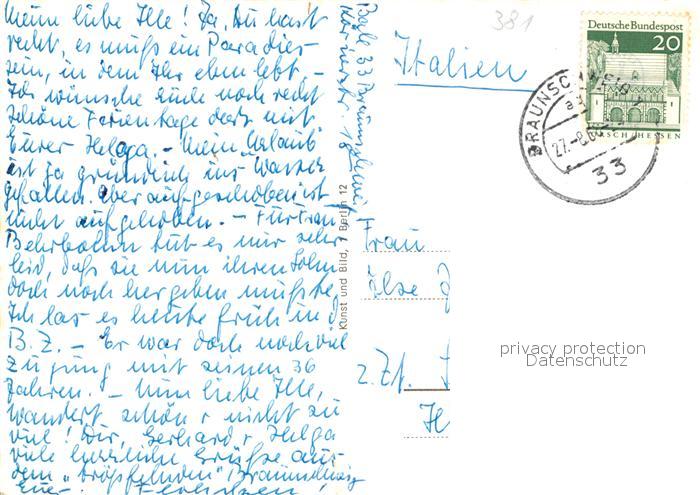 Meine liebe Ille! Ja, Du hast
recht, es muß ein Paradies
sein, in dem Ihr eben lebt. –
Ich wünsche Euch noch recht
schöne Ferientage dort mit
Eurer Helga. – Mein „Urlaub"
ist ja gründlich ins Wasser
gefallen. Aber aufgeschoben ist
nicht aufgehoben. – Für Frau
tut es mir sehr
leid, daß sie nun ihren Sohn
doch noch hergeben mußte.
Ich las es heute früh in d.
B. Z. – Er war doch noch viel
zu jung mit seinen 36
Jahren. – Nun liebe Ille,
wandert schön u nicht zu
viel! Dir, Gerhard u Helga
viele herzliche Grüße aus
dem „tröpfelnden" Braunschweig
Eure
33 Braunschweig
Kunst und Bild, 1 Berlin 12
381
Italien
Deutsche Bundespost
20
LORSCH/HESSEN
BRAUNSCHWEIG
27.-8.68
33
Frau
Ilse
z. Zt.
H
privacy protection
Datenschutz